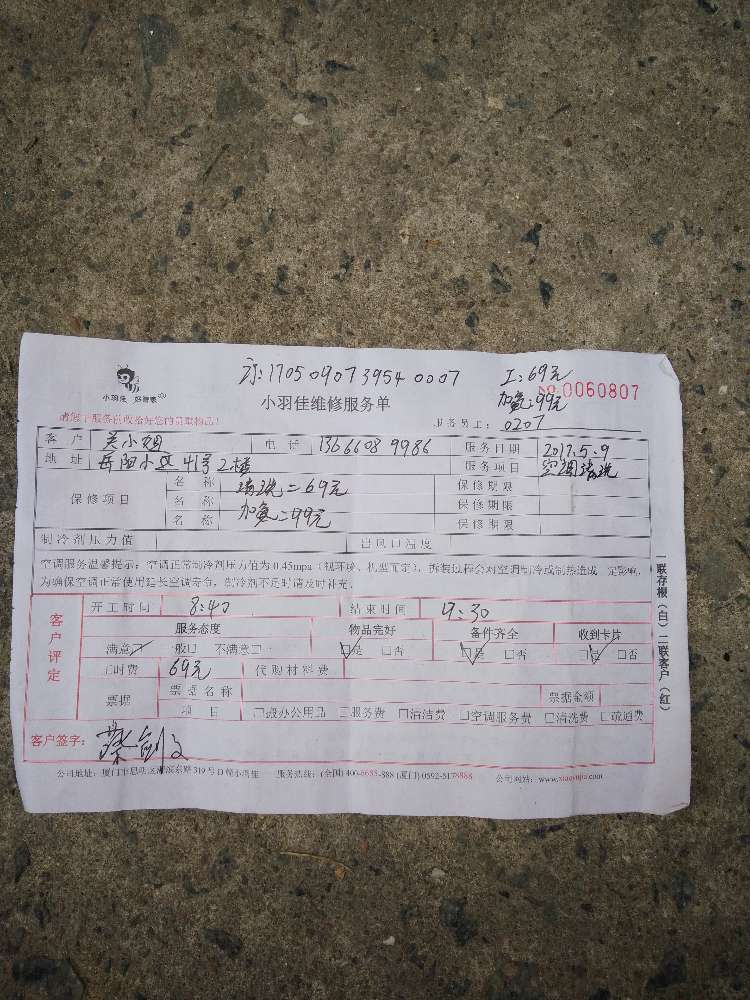 17050907 3954 0007
工:69元
小羽佳 好帮家
小羽佳维修服务单
加氟:99元
No.0060807
服务员工:0207
客户 吴小姐 电话 1366608 9986 服务日期 2017.5.9
地址 岳阳小区41号2楼 服务项目 空调清洗
保修项目
名称 清洗=69元 保修期限
名称 加氟=99元 保修期限
名称 保修期限
制冷剂压力值 出风口温度
空调服务温馨提示:空调正常制冷剂压力值为0.45mpa(视环境、机型而定),拆装过程会对空调制冷或制热造成一定影响,
为确保空调正常使用延长空调寿命,制冷剂不足时请及时补充。
客户评定
开工时间 8:40 结束时间 9:30
服务态度 物品完好 备件齐全 收到卡片
满意 一般□ 不满意□ □是 □否 □是 □否 □是 □否
工时费 69元 代购材料费
票据
票据名称 票据金额
项目 □拨办公用品 □服务费 □清洁费 □空调服务费 □清洗费 □疏通费
客户签字:
服务热线:(全国)400-6685-888 (厦门)0592-5178888 公司网站:www.xiaoyujia.com
一联存根(白)二联客户(红)